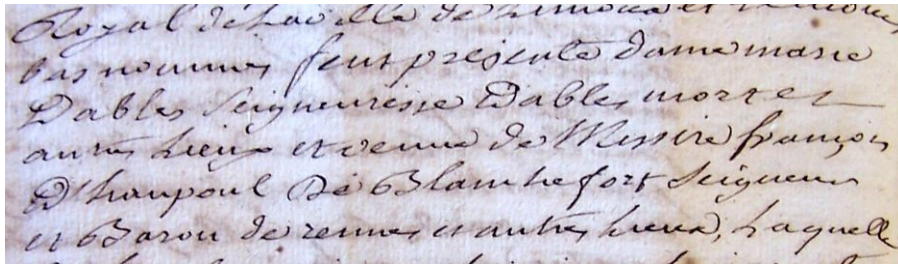 Royal de la ville de Limoux et
bas nommes feut presente dame marie
Dables Seigneuresse Dables mortes
autres Lieux et veuve de Messire françois
D'hautpoul De Blanchefort Seigneur
et Baron de rennes et autres Lieux, Laquelle